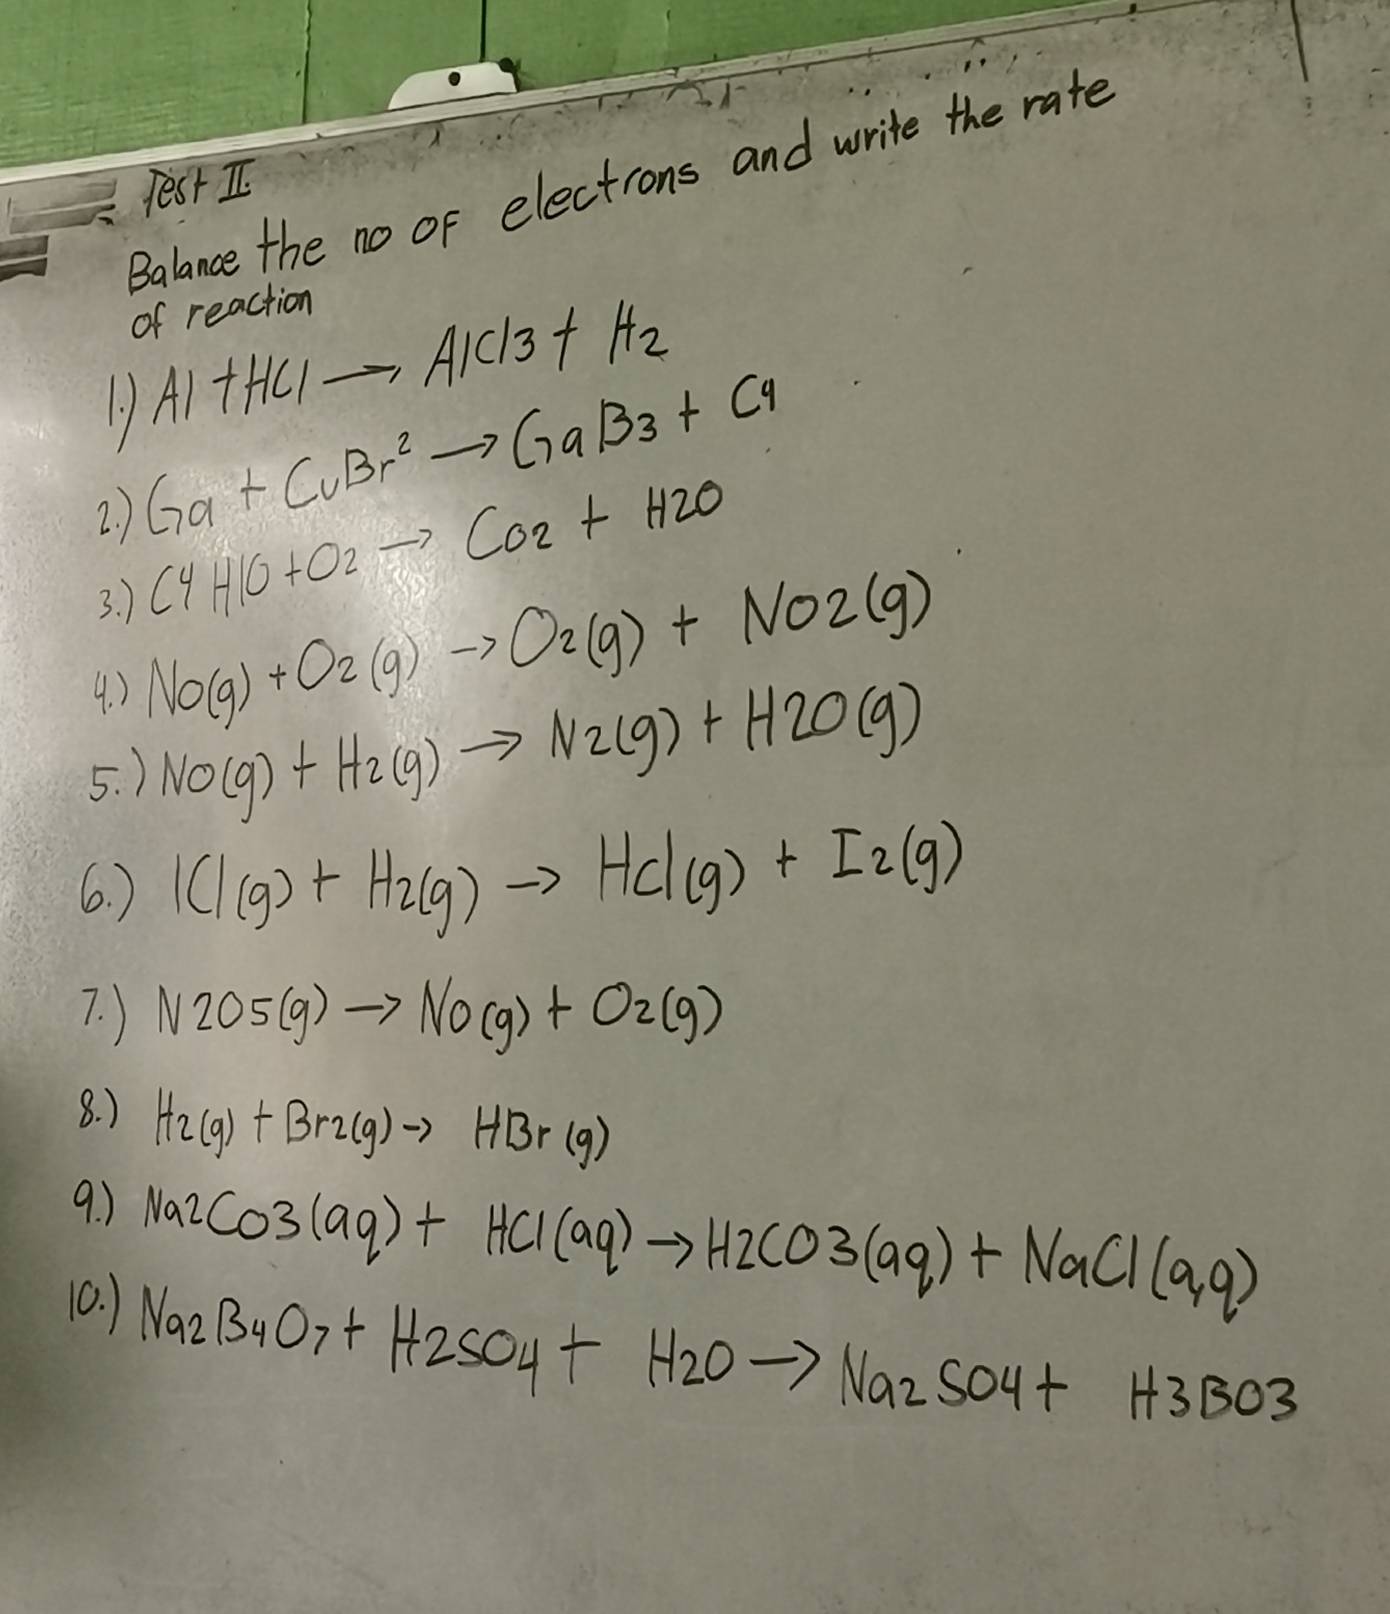 Test II.
Balance the no OF electrons and write the rate
of reaction
1.) Al + HCl → AlCl3 + H2
2.) Ga + CuBr² → GaB3 + C4
3.) C4 H10 + O2 → CO2 + H2O
4.) No(g) + O2(g) → O2(g) + NO2(g)
5.) NO(g) + H2(g) → N2(g) + H2O(g)
6.) ICl(g) + H2(g) → Hcl(g) + I2(g)
7.) N2O5(g) → No(g) + O2(g)
8.) H2(g) + Br2(g) → HBr (g)
9.) Na2CO3(aq) + HCl(aq) → H2CO3(aq) + NaCl(a,q)
10.) Na2B4O7 + H2SO4 + H2O → Na2SO4 + H3BO3